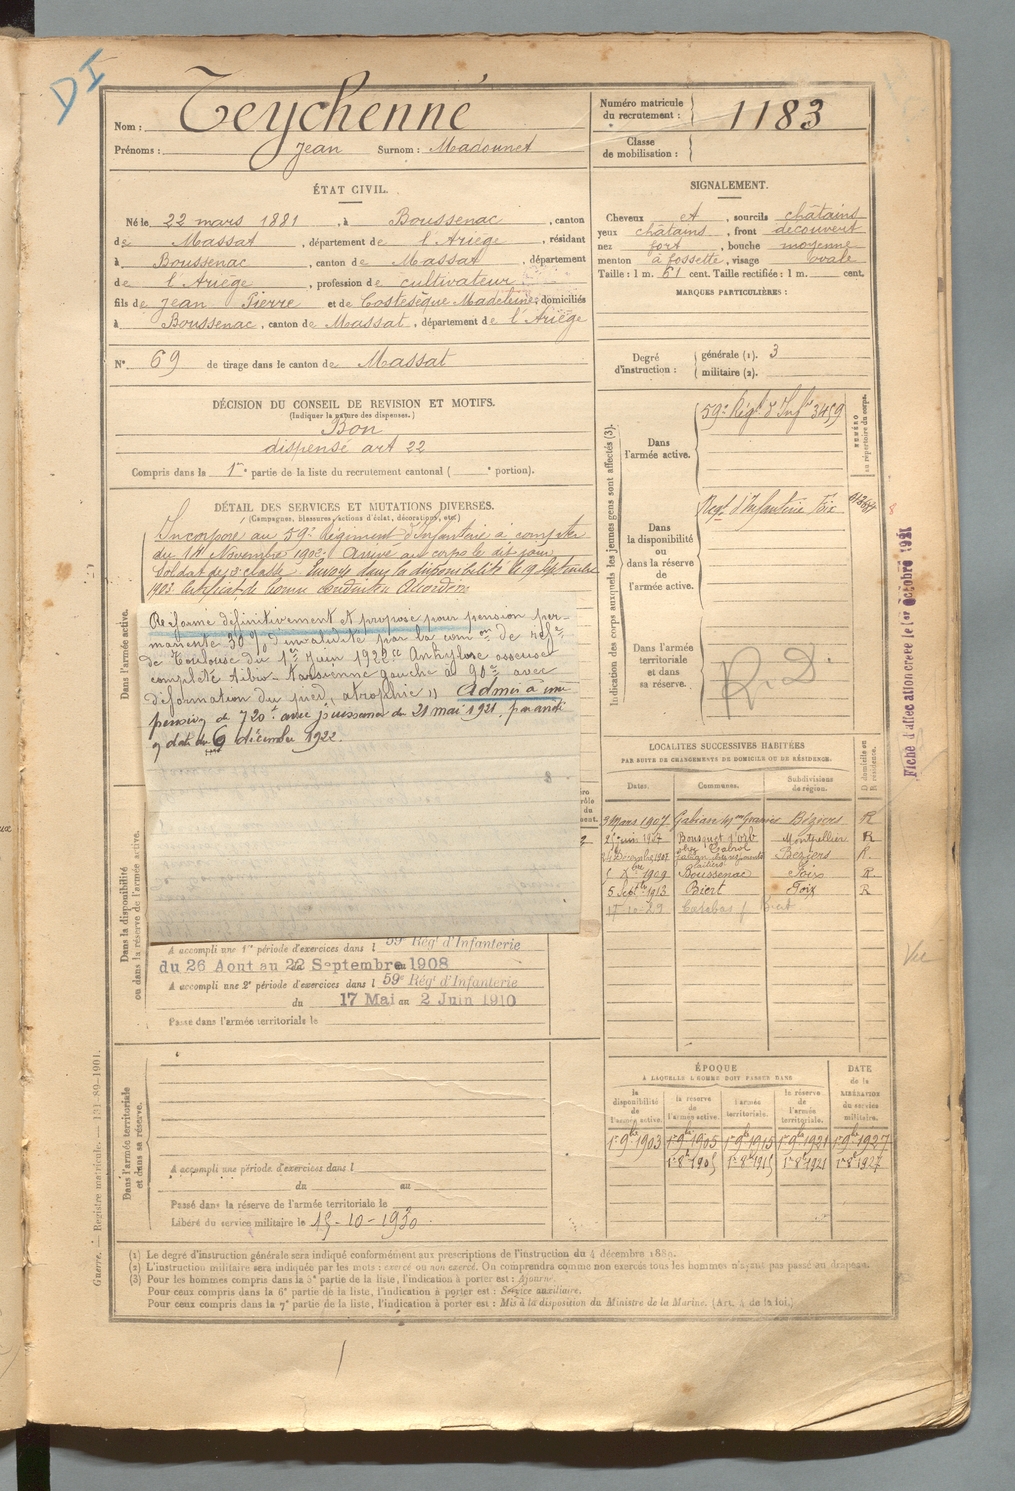 DI
Nom : Teychenné
Prénoms : Jean Surnom : Madounet
Numéro matricule du recrutement : 1183
Classe de mobilisation :
ÉTAT CIVIL.
Né le 22 mars 1881, à Boussenac, canton
de Massat, département de l'Ariège, résidant
à Boussenac, canton de Massat, département
de l'Ariège, profession de cultivateur
fils de Jean Pierre et de Costesèque Madeleine, domiciliés
à Boussenac, canton de Massat, département de l'Ariège
N° 69 de tirage dans le canton de Massat
SIGNALEMENT.
Cheveux et, sourcils châtains
yeux châtains, front découvert
nez fort, bouche moyenne
menton à fossette, visage ovale
Taille : 1 m. 61 cent. Taille rectifiée : 1 m. cent.
MARQUES PARTICULIÈRES :
Degré d'instruction : générale (1). 3
militaire (2).
DÉCISION DU CONSEIL DE REVISION ET MOTIFS.
(Indiquer la nature des dispenses.)
Bon
dispensé art 22
Compris dans la 1re partie de la liste du recrutement cantonal ( e portion).
DÉTAIL DES SERVICES ET MUTATIONS DIVERSES.
(Campagnes, blessures, actions d'éclat, décorations, etc.)
Incorporé au 59e Régiment d'Infanterie à compter
du 14 Novembre 1902. Arrivé au corps le dit jour
Soldat de 2e classe. Envoyé dans la disponibilité le 19 Septembre
1903. Certificat de bonne conduite Accordé
Dans l'armée active.
Réformé définitivement et proposé pour pension per-
manente 30 % d'invalidité par la comon de réfe
de Toulouse du 1er Juin 1922 Ankylose osseuse
complète tibio-tarsienne gauche à 90° avec
déformation du pied, atrophie " Admis à une
pension de 720 f avec jouissance du 21 mai 1921,
date du 6 décembre 1922.
Dans la disponibilité ou dans la réserve de l'armée active.
A accompli une 1re période d'exercices dans l 59e Régt d'Infanterie
du 26 Aout au 22 Septembre 1908
A accompli une 2e période d'exercices dans l 59e Régt d'Infanterie
du 17 Mai au 2 Juin 1910
Passé dans l'armée territoriale le
Dans l'armée territoriale et dans sa réserve.
A accompli une période d'exercices dans l
du au
Passé dans la réserve de l'armée territoriale le
Libéré du service militaire le 15-10-1930
Indication des corps auxquels les jeunes gens sont affectés (3).
NUMÉRO au répertoire du corps.
Dans l'armée active. 59e Régt d'Infie 3459
Dans la disponibilité ou dans la réserve de l'armée active. Régt d'Infanterie Foix
Dans l'armée territoriale et dans sa réserve. R.D.
Fiche d'affectation créée le 1er Octobre 1921
LOCALITÉS SUCCESSIVES HABITÉES
PAR SUITE DE CHANGEMENTS DE DOMICILE OU DE RÉSIDENCE.
Dates. Communes. Subdivisions de région. D domicile ou R résidence.
3 Mars 1907 Béziers R
Juin 1907 Bousquet d'Orb Montpellier R
Décembre 1907 Béziers R.
1909 Boussenac Foix R.
5 Septbre 1913 Biert Foix R
17-10-29
Vu
ÉPOQUE
À LAQUELLE L'HOMME DOIT PASSER DANS
la disponibilité de l'armée active. la réserve de l'armée active. l'armée territoriale. la réserve de l'armée territoriale. DATE de la LIBÉRATION du service militaire.
1er 9bre 1903 1er 9bre 1905 1er 9bre 1915 1er 9bre 1921 1er 9bre 1927
1er 8bre 1905 1er 8bre 1915 1er 8bre 1921 1er 8bre 1927
Guerre. — Registre matricule. — 131-89-1901.
(1) Le degré d'instruction générale sera indiqué conformément aux prescriptions de l'instruction du 4 décembre 1889.
(2) L'instruction militaire sera indiquée par les mots : exercé ou non exercé. On comprendra comme non exercés tous les hommes n'ayant pas passé au drapeau.
(3) Pour les hommes compris dans la 5e partie de la liste, l'indication à porter est : Ajourné.
Pour ceux compris dans la 6e partie de la liste, l'indication à porter est : Service auxiliaire.
Pour ceux compris dans la 7e partie de la liste, l'indication à porter est : Mis à la disposition du Ministre de la Marine. (Art. 4 de la loi.)